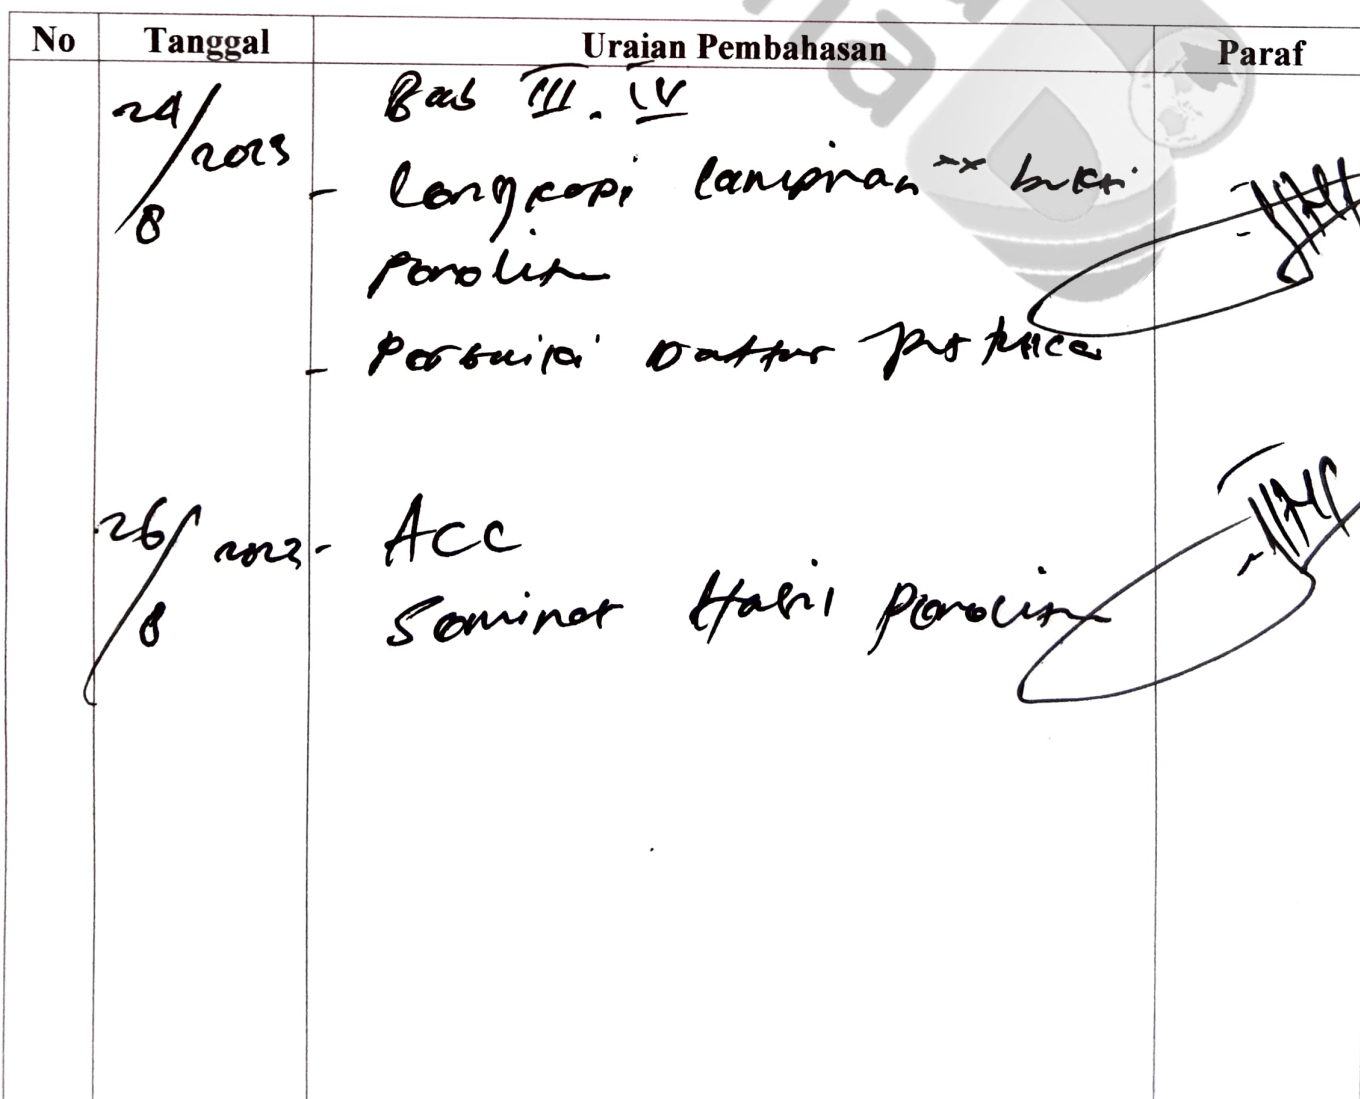 No Tanggal Uraian Pembahasan Paraf
24/8 2023 Bab III. IV
- Lengkapi lampiran xx bukti
penelitn
- Perbaiki Daftar pustaka
26/8 2023 - ACC
Seminar Hasil penelitn